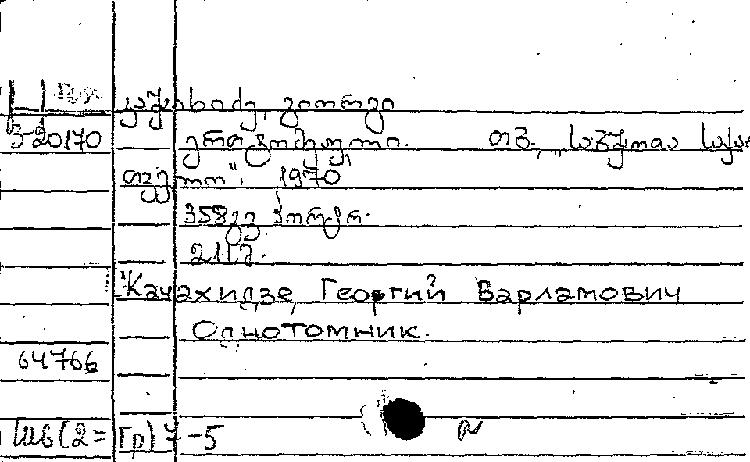 კაჭახიძე, გიორგი
3-20170 ერთტომეული. თბ., „საბჭოთა საქა
თველო“, 1970
358გვ. პორტრ.
2117.
Качахидзе, Георгий Варламович
Однотомник.
64766
Шв(2=Гр)7-5